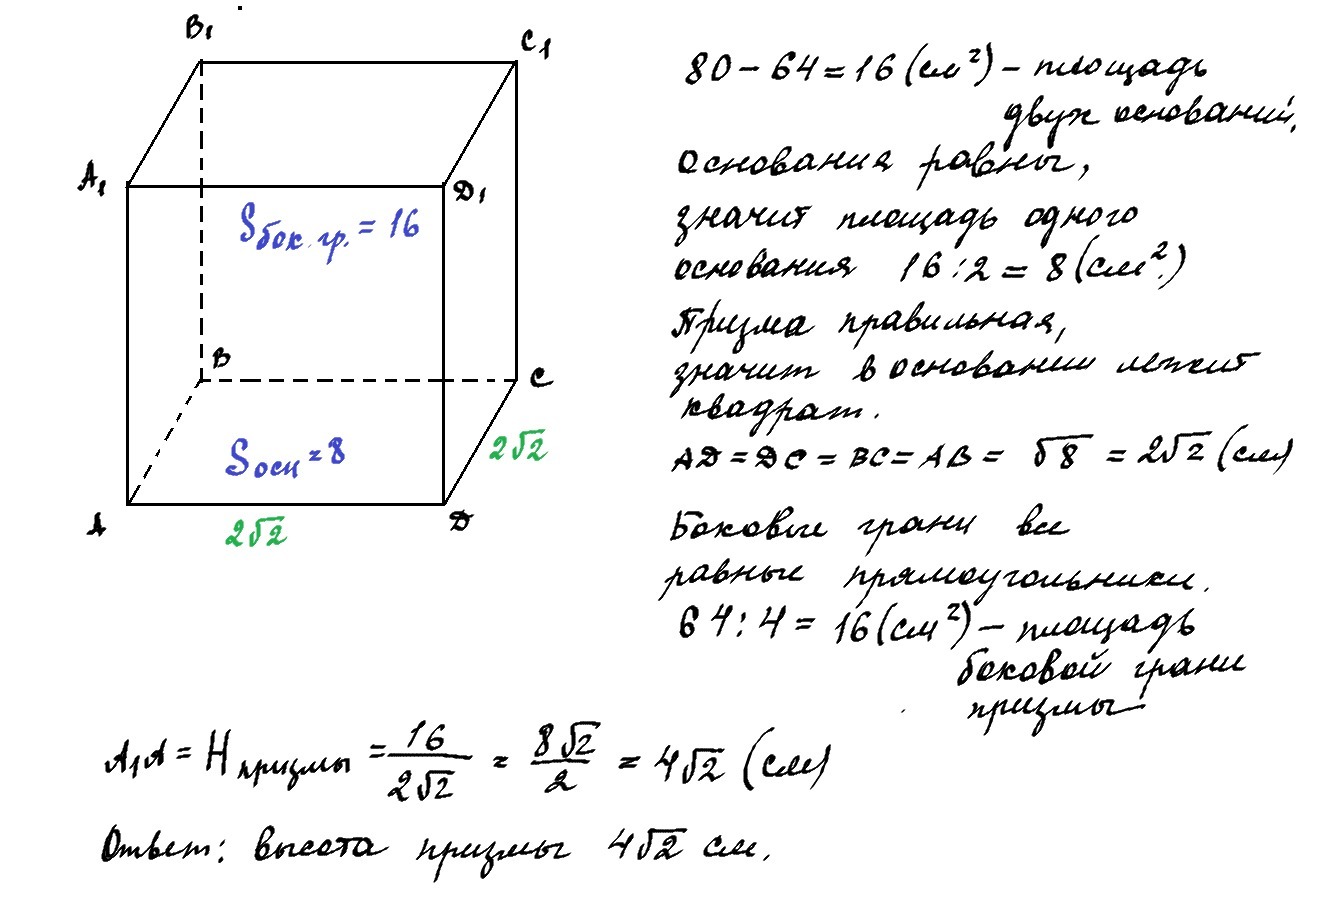 B₁
C₁
A₁
D₁
Sбок.гр. = 16
B
C
Sосн = 8
2√2
A
2√2
D
80 − 64 = 16 (см²) − площадь
двух оснований.
Основания равны,
значит площадь одного
основания 16 : 2 = 8 (см²)
Призма правильная,
значит в основании лежит
квадрат.
AD = DC = BC = AB = √8 = 2√2 (см)
Боковые грани все
равные прямоугольники.
64 : 4 = 16 (см²) − площадь
боковой грани
призмы
A₁A = H призмы = 16/2√2 = 8√2/2 = 4√2 (см)
Ответ: высота призмы 4√2 см.